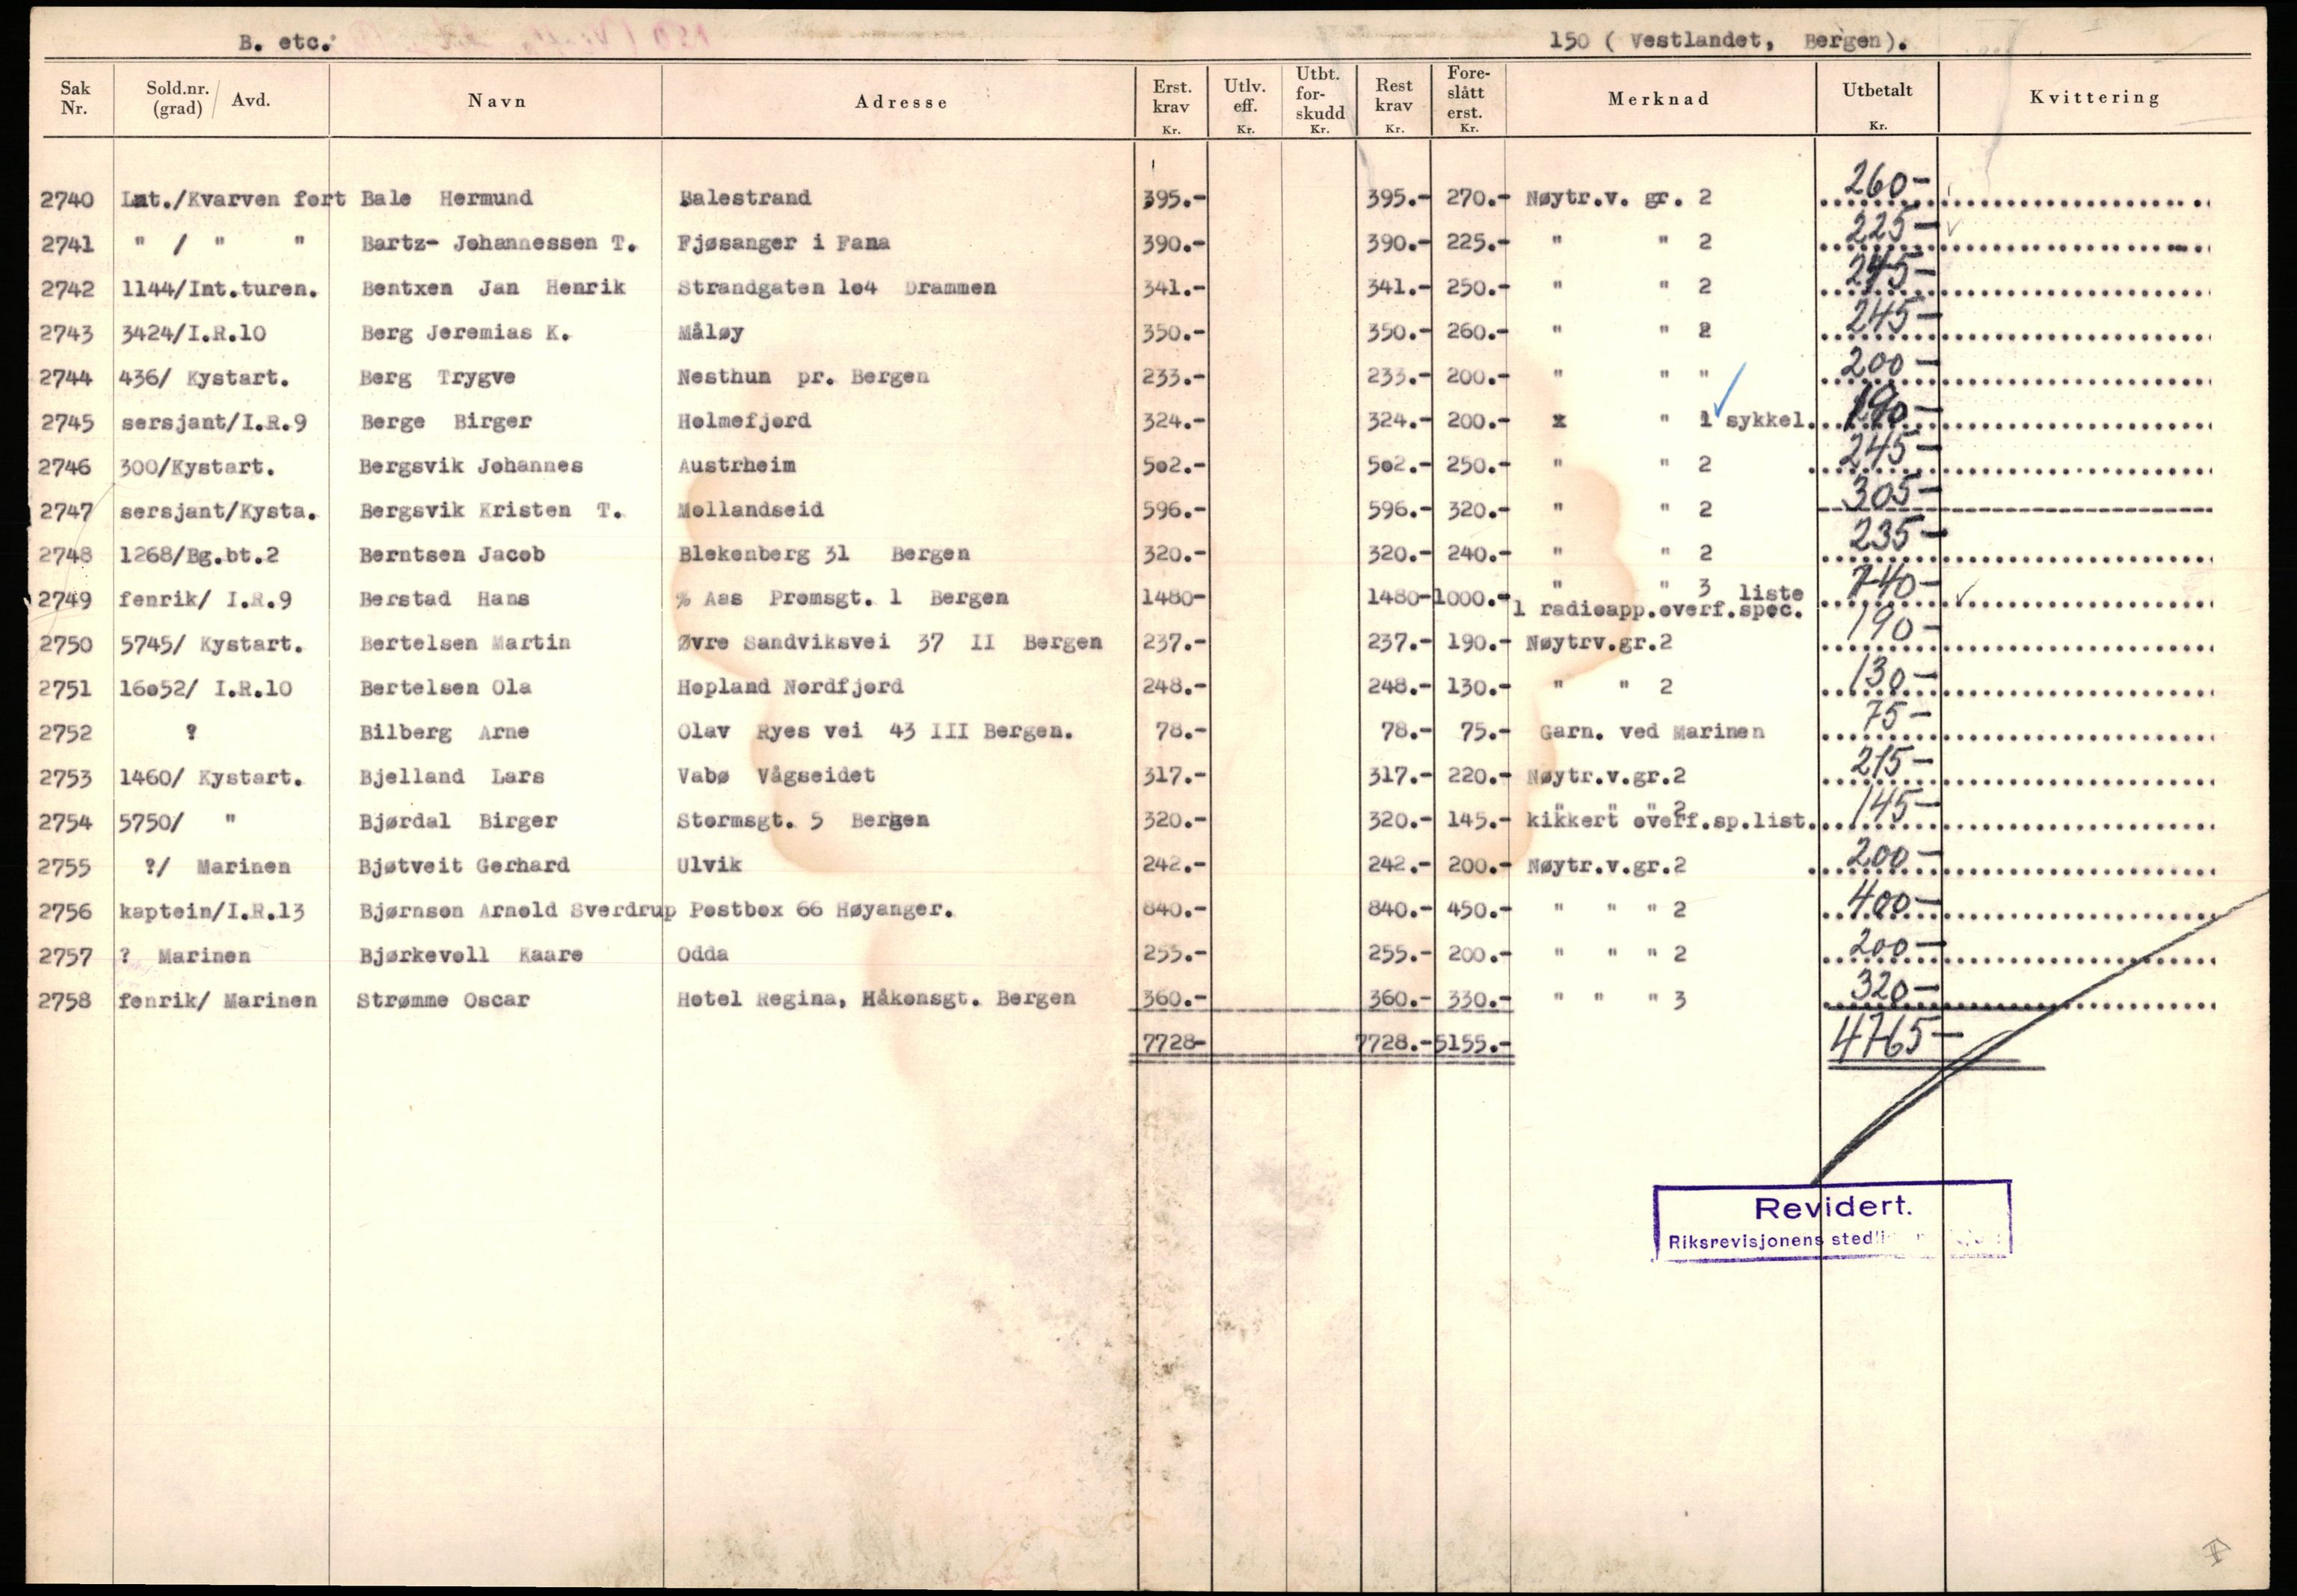 B. etc. 150 ( Vestlandet, Bergen).
Sak Nr. Sold.nr. (grad) / Avd. Navn Adresse Erst. krav Kr. Utlv. eff. Kr. Utbt. for-skudd Kr. Rest krav Kr. Fore-slått erst. Kr. Merknad Utbetalt Kr. Kvittering
2740 Lnt./Kvarven fort Bale Hermund Balestrand 395.- 395.- 270.- Nøytr.v. gr. 2 260-
2741 " / " " Bartz- Johannessen T. Fjøsanger i Fana 390.- 390.- 225.- " " 2 225-
2742 1144/Int.turen. Bentxen Jan Henrik Strandgaten 1o4 Drammen 341.- 341.- 250.- " " 2 245-
2743 3424/I.R.10 Berg Jeremias K. Måløy 350.- 350.- 260.- " " 2 245-
2744 436/ Kystart. Berg Trygve Nesthun pr. Bergen 233.- 233.- 200.- " " " 200-
2745 sersjant/I.R.9 Berge Birger Holmefjord 324.- 324.- 200.- x " 1 sykkel. 190-
2746 300/Kystart. Bergsvik Johannes Austrheim 5o2.- 5o2.- 250.- " " 2 245-
2747 sersjant/Kysta. Bergsvik Kristen T. Mollandseid 596.- 596.- 320.- " " 2 305-
2748 1268/Bg.bt.2 Berntsen Jacob Blekenberg 31 Bergen 320.- 320.- 240.- " " 2 235-
2749 fenrik/ I.R.9 Berstad Hans % Aas Promsgt. 1 Bergen 1480- 1480- 1000.- " " 3 liste 740-
1 radioapp.overf.spec.
2750 5745/ Kystart. Bertelsen Martin Øvre Sandviksvei 37 II Bergen 237.- 237.- 190.- Nøytrv.gr.2 190-
2751 16o52/ I.R.10 Bertelsen Ola Hopland Nordfjord 248.- 248.- 130.- " " 2 130-
2752 ? Bilberg Arne Olav Ryes vei 43 III Bergen. 78.- 78.- 75.- Garn. ved Marinen 75-
2753 1460/ Kystart. Bjelland Lars Vabø Vågseidet 317.- 317.- 220.- Nøytr.v.gr.2 215-
" " " 2
2754 5750/ " Bjørdal Birger Stormsgt. 5 Bergen 320.- 320.- 145.- kikkert overf.sp.list. 145-
2755 ?/ Marinen Bjøtveit Gerhard Ulvik 242.- 242.- 200.- Nøytr.v.gr.2 200-
2756 kaptein/I.R.13 Bjørnson Arnold Sverdrup Postbox 66 Høyanger. 840.- 840.- 450.- " " " 2 400-
2757 ? Marinen Bjørkevoll Kaare Odda 255.- 255.- 200.- " " " 2 200-
2758 fenrik/ Marinen Strømme Oscar Hotel Regina, Håkonsgt. Bergen 360.- 360.- 330.- " " " 3 320-
7728- 7728.- 5155.- 4765-
Revidert.
Riksrevisjonens